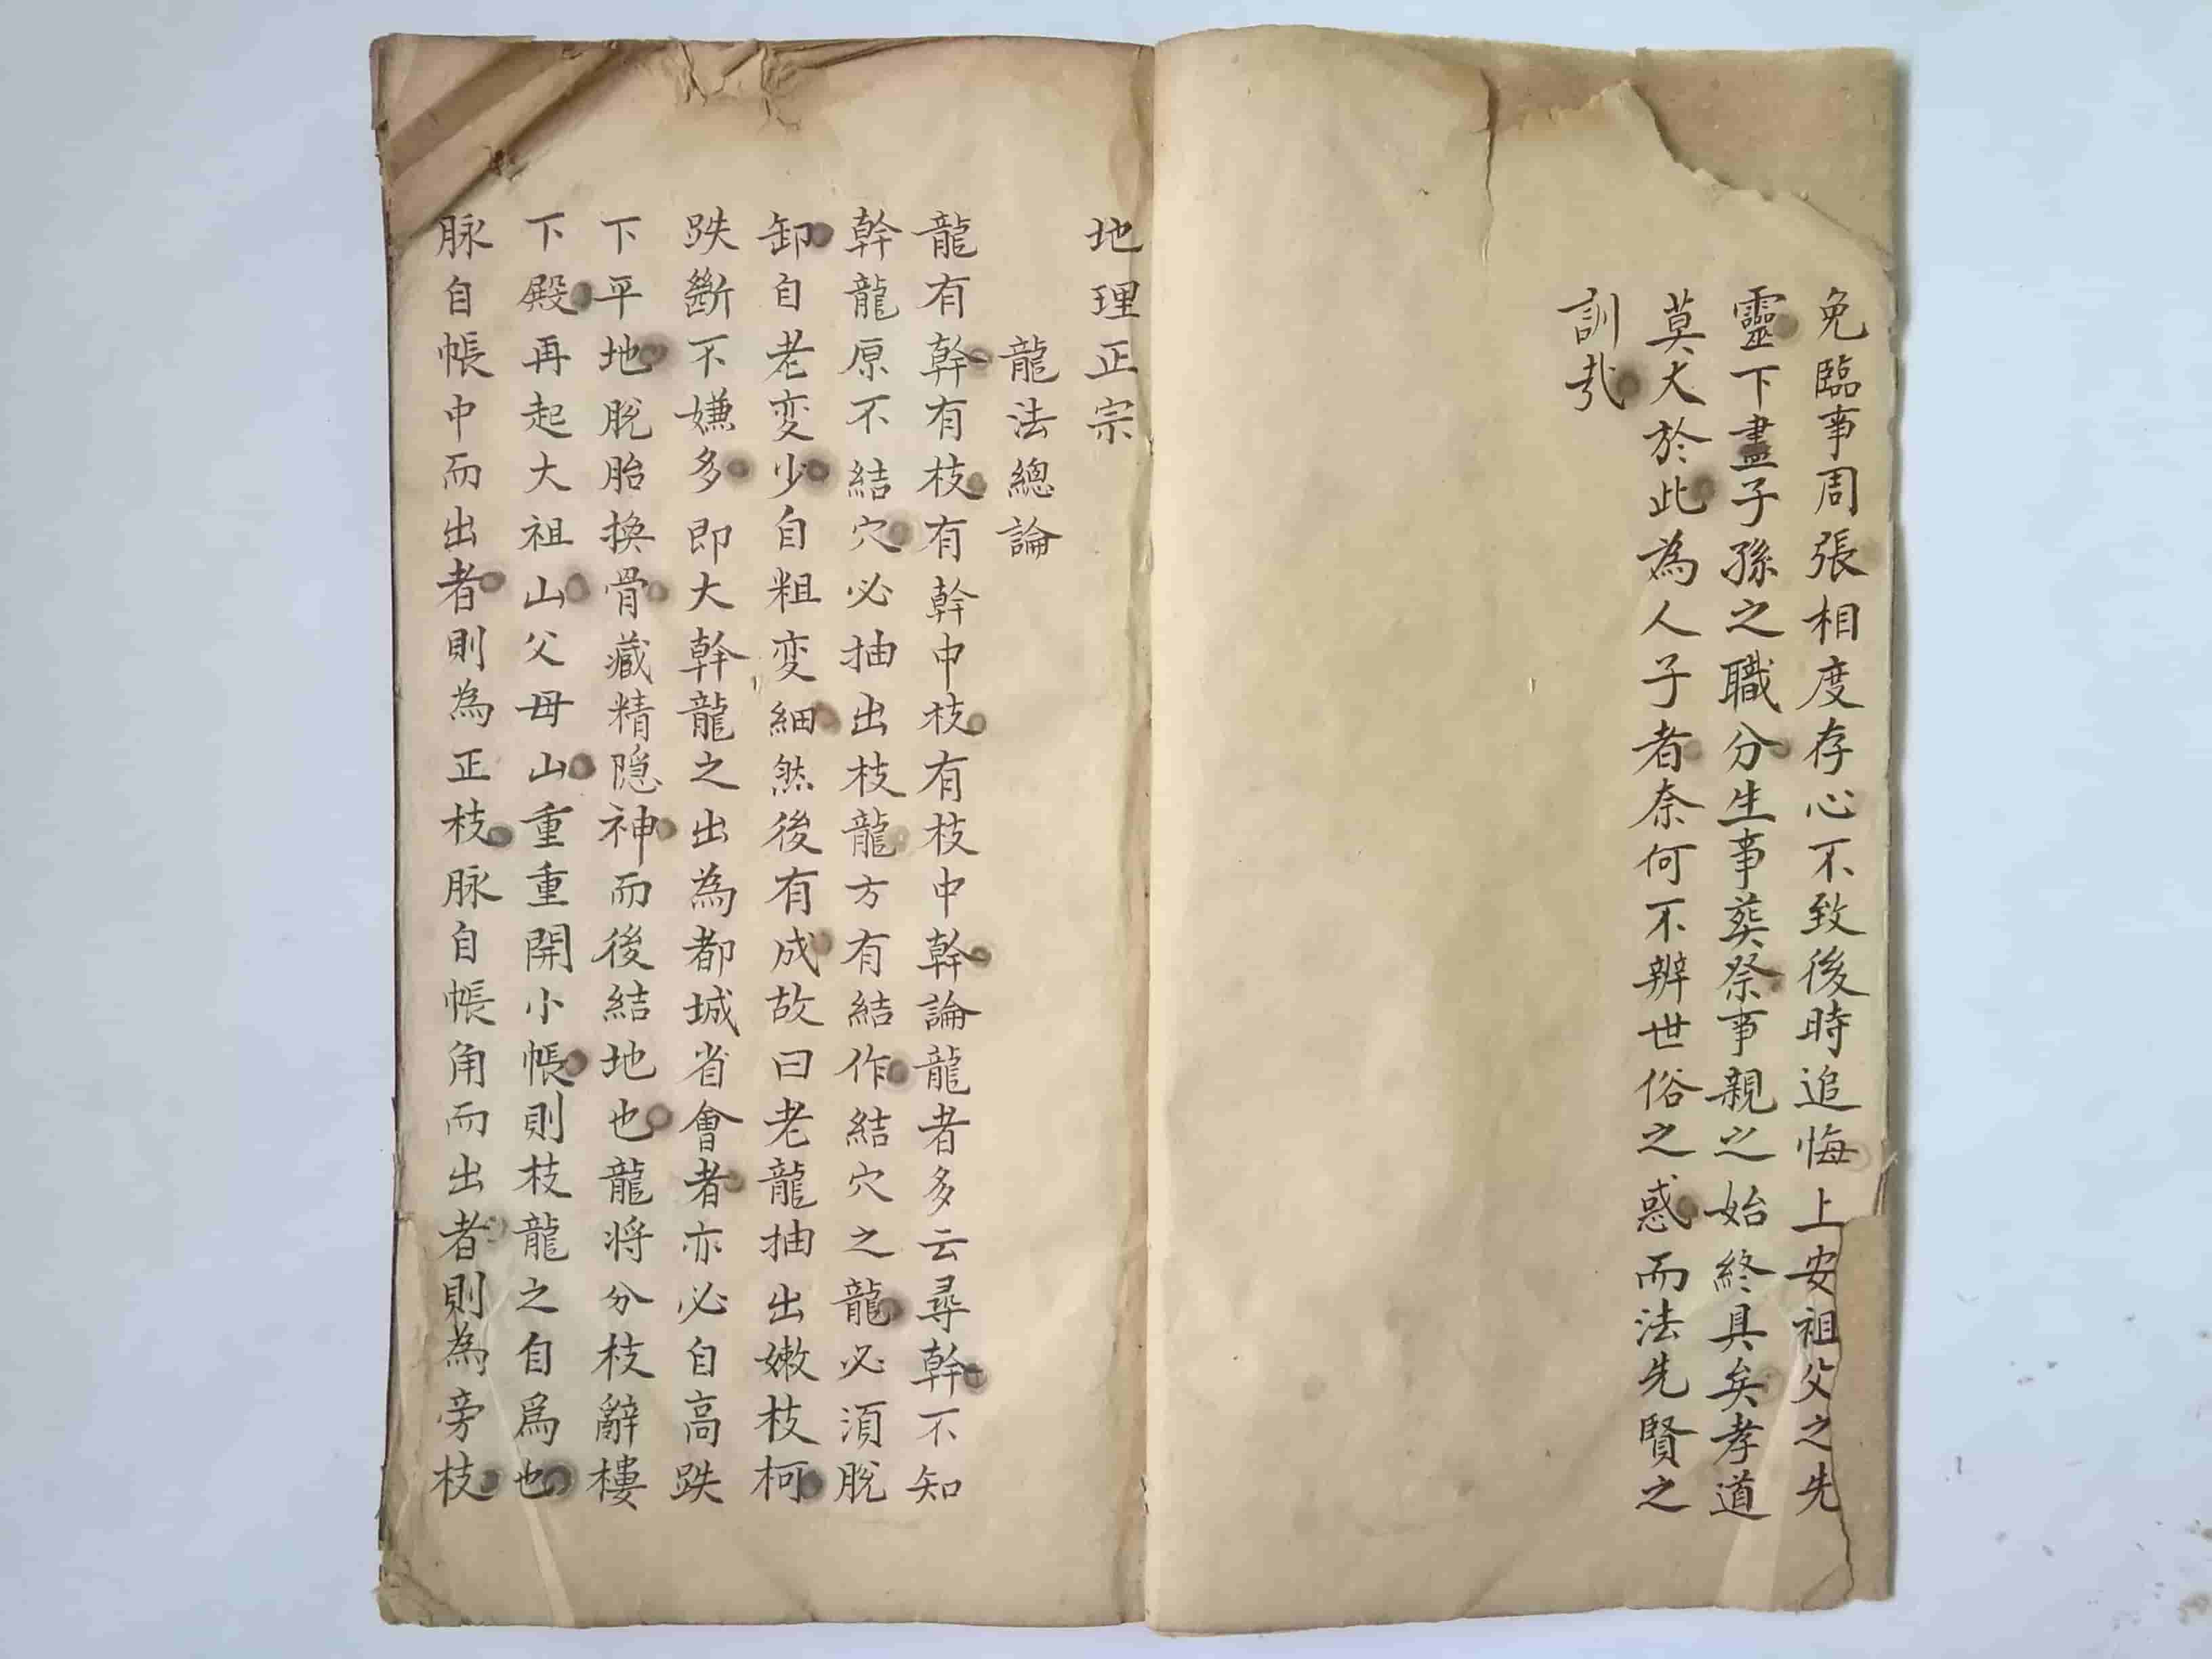 免臨事周張相度存心不致後時追悔上安祖父之先
靈下盡子孫之職分生事葬祭事親之始終具矣孝道
莫大於此為人子者奈何不辨世俗之惑而法先賢之
訓哉
地理正宗
龍法總論
龍有幹有枝有幹中枝有枝中幹論龍者多云尋幹不知
幹龍原不結穴必抽出枝龍方有結作結穴之龍必須脫
卸自老変少自粗変細然後有成故曰老龍抽出嫩枝柯
跌斷不嫌多即大幹龍之出為都城省會者亦必自高跌
下平地脫胎換骨藏精隠神而後結地也龍將分枝辭樓
下殿再起大祖山父母山重重開小帳則枝龍之自爲也
脉自帳中而出者則為正枝脉自帳角而出者則為旁枝